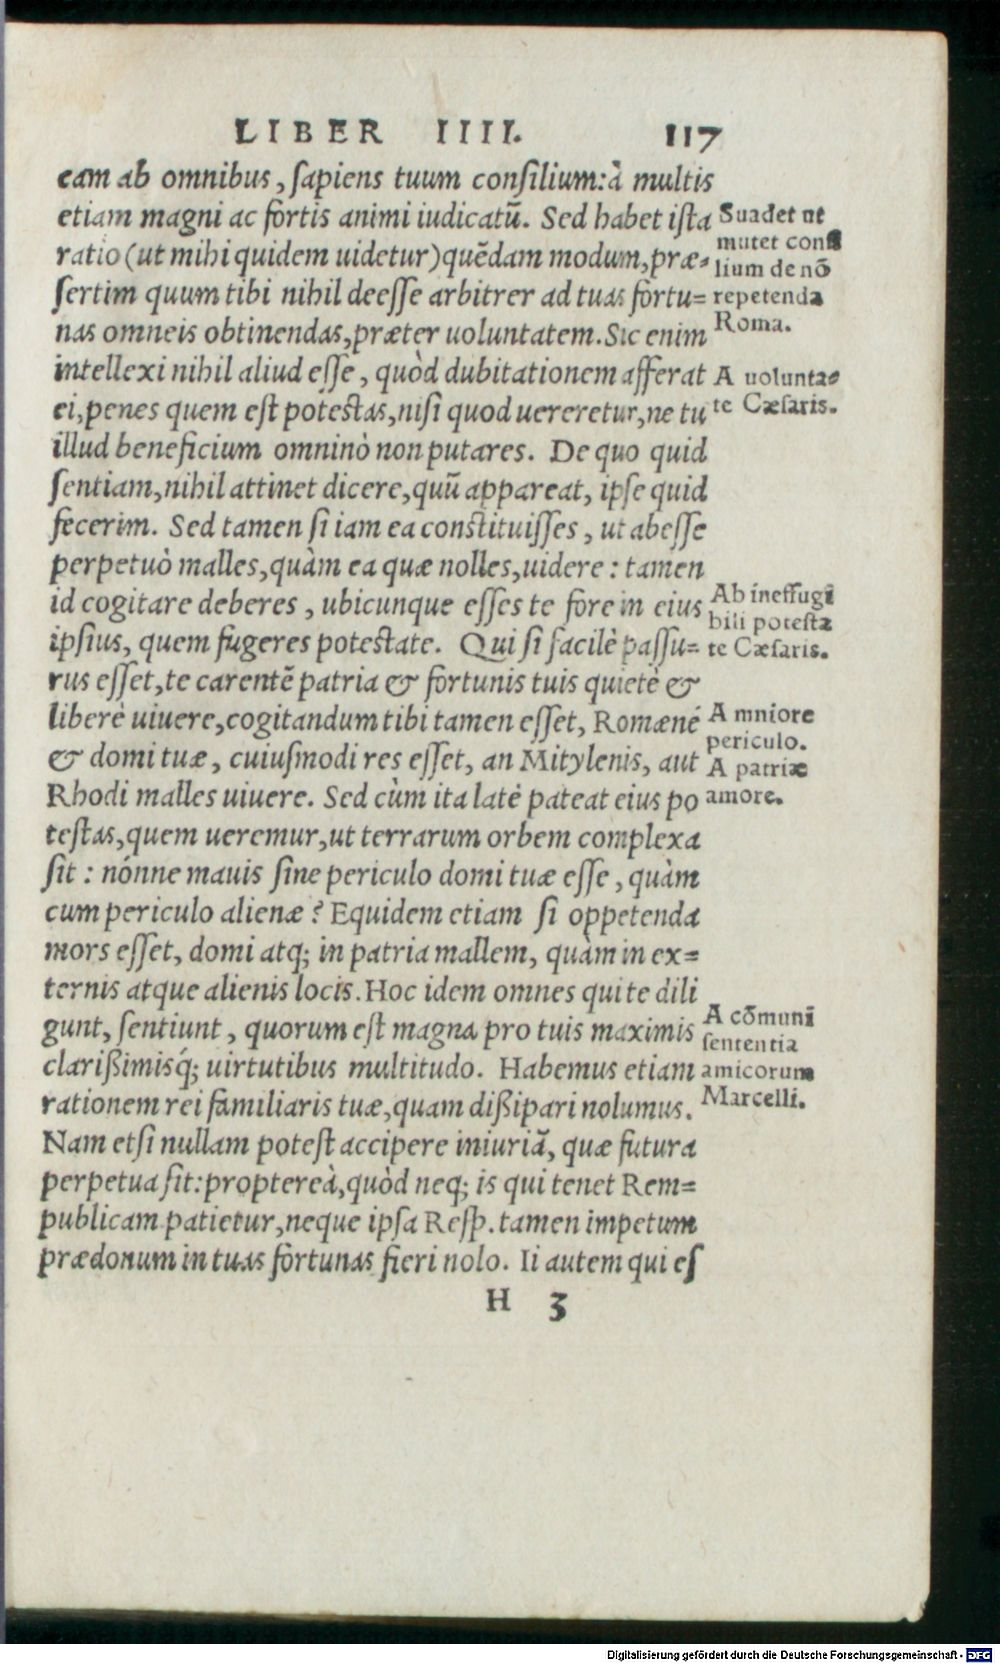 LIBER IIII. 117
eam ab omnibus, ſapiens tuum conſilium:à multis
etiam magni ac fortis animi iudicatū. Sed habet iſta
ratio (ut mihi quidem uidetur) quēdam modum, præ-
ſertim quum tibi nihil deeſſe arbitrer ad tuas fortu=
nas omneis obtinendas, præter uoluntatem. Sic enim
intellexi nihil aliud eſſe, quòd dubitationem afferat
ei, penes quem eſt poteſtas, niſi quod uereretur, ne tu
illud beneficium omninò non putares. De quo quid
ſentiam, nihil attinet dicere, quū appareat, ipſe quid
fecerim. Sed tamen ſi iam ea conſtituiſſes, ut abeſſe
perpetuò malles, quàm ea quæ nolles, uidere: tamen
id cogitare deberes, ubicunque eſſes te fore in eius
ipſius, quem fugeres poteſtate. Qui ſi facilè paſſu=
rus eſſet, te carentē patria & fortunis tuis quietè &
liberè uiuere, cogitandum tibi tamen eſſet, Romæné
& domi tuæ, cuiuſmodi res eſſet, an Mitylenis, aut
Rhodi malles uiuere. Sed cùm ita latè pateat eius po
teſtas, quem ueremur, ut terrarum orbem complexa
ſit: nónne mauis ſine periculo domi tuæ eſſe, quàm
cum periculo alienæ? Equidem etiam ſi oppetenda
mors eſſet, domi atq; in patria mallem, quàm in ex=
ternis atque alienis locis. Hoc idem omnes qui te dili
gunt, ſentiunt, quorum eſt magna pro tuis maximis
clarißimisq́; uirtutibus multitudo. Habemus etiam
rationem rei familiaris tuæ, quam dißipari nolumus.
Nam etſi nullam poteſt accipere iniuriā, quæ futura
perpetua ſit: proptereà, quòd neq; is qui tenet Rem=
publicam patietur, neque ipſa Reſp. tamen impetum
prædonum in tuas fortunas fieri nolo. Ii autem qui eſ
H 3
Suadet ut
mutet conſi
lium de nō
repetenda
Roma.
A volunta-
te Cæſaris.
Ab ineffugi
bili poteſta
te Cæſaris.
A mniore
periculo.
A patriæ
amore.
A cōmuni
ſententia
amicorum
Marcelli.
Digitalisierung gefördert durch die Deutsche Forschungsgemeinschaft - DFG